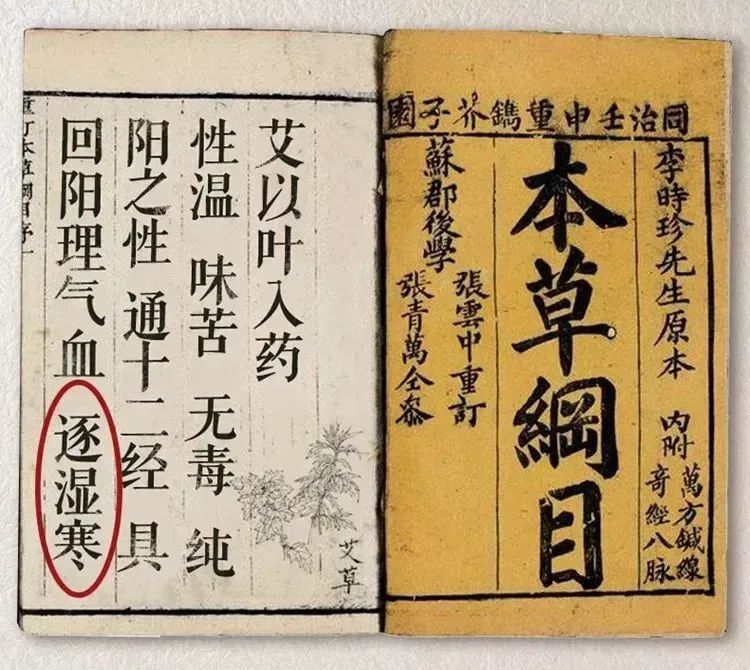 同治壬申重鐫芥子園
李時珍先生原本
內附
萬方鍼線
奇經八脉
本草綱目
蘇郡後學
張雲中重訂
張青萬仝參
艾以叶入药
性温 味苦 无毒 纯
阳之性 通十二经 具
回阳理气血 逐湿寒
艾草